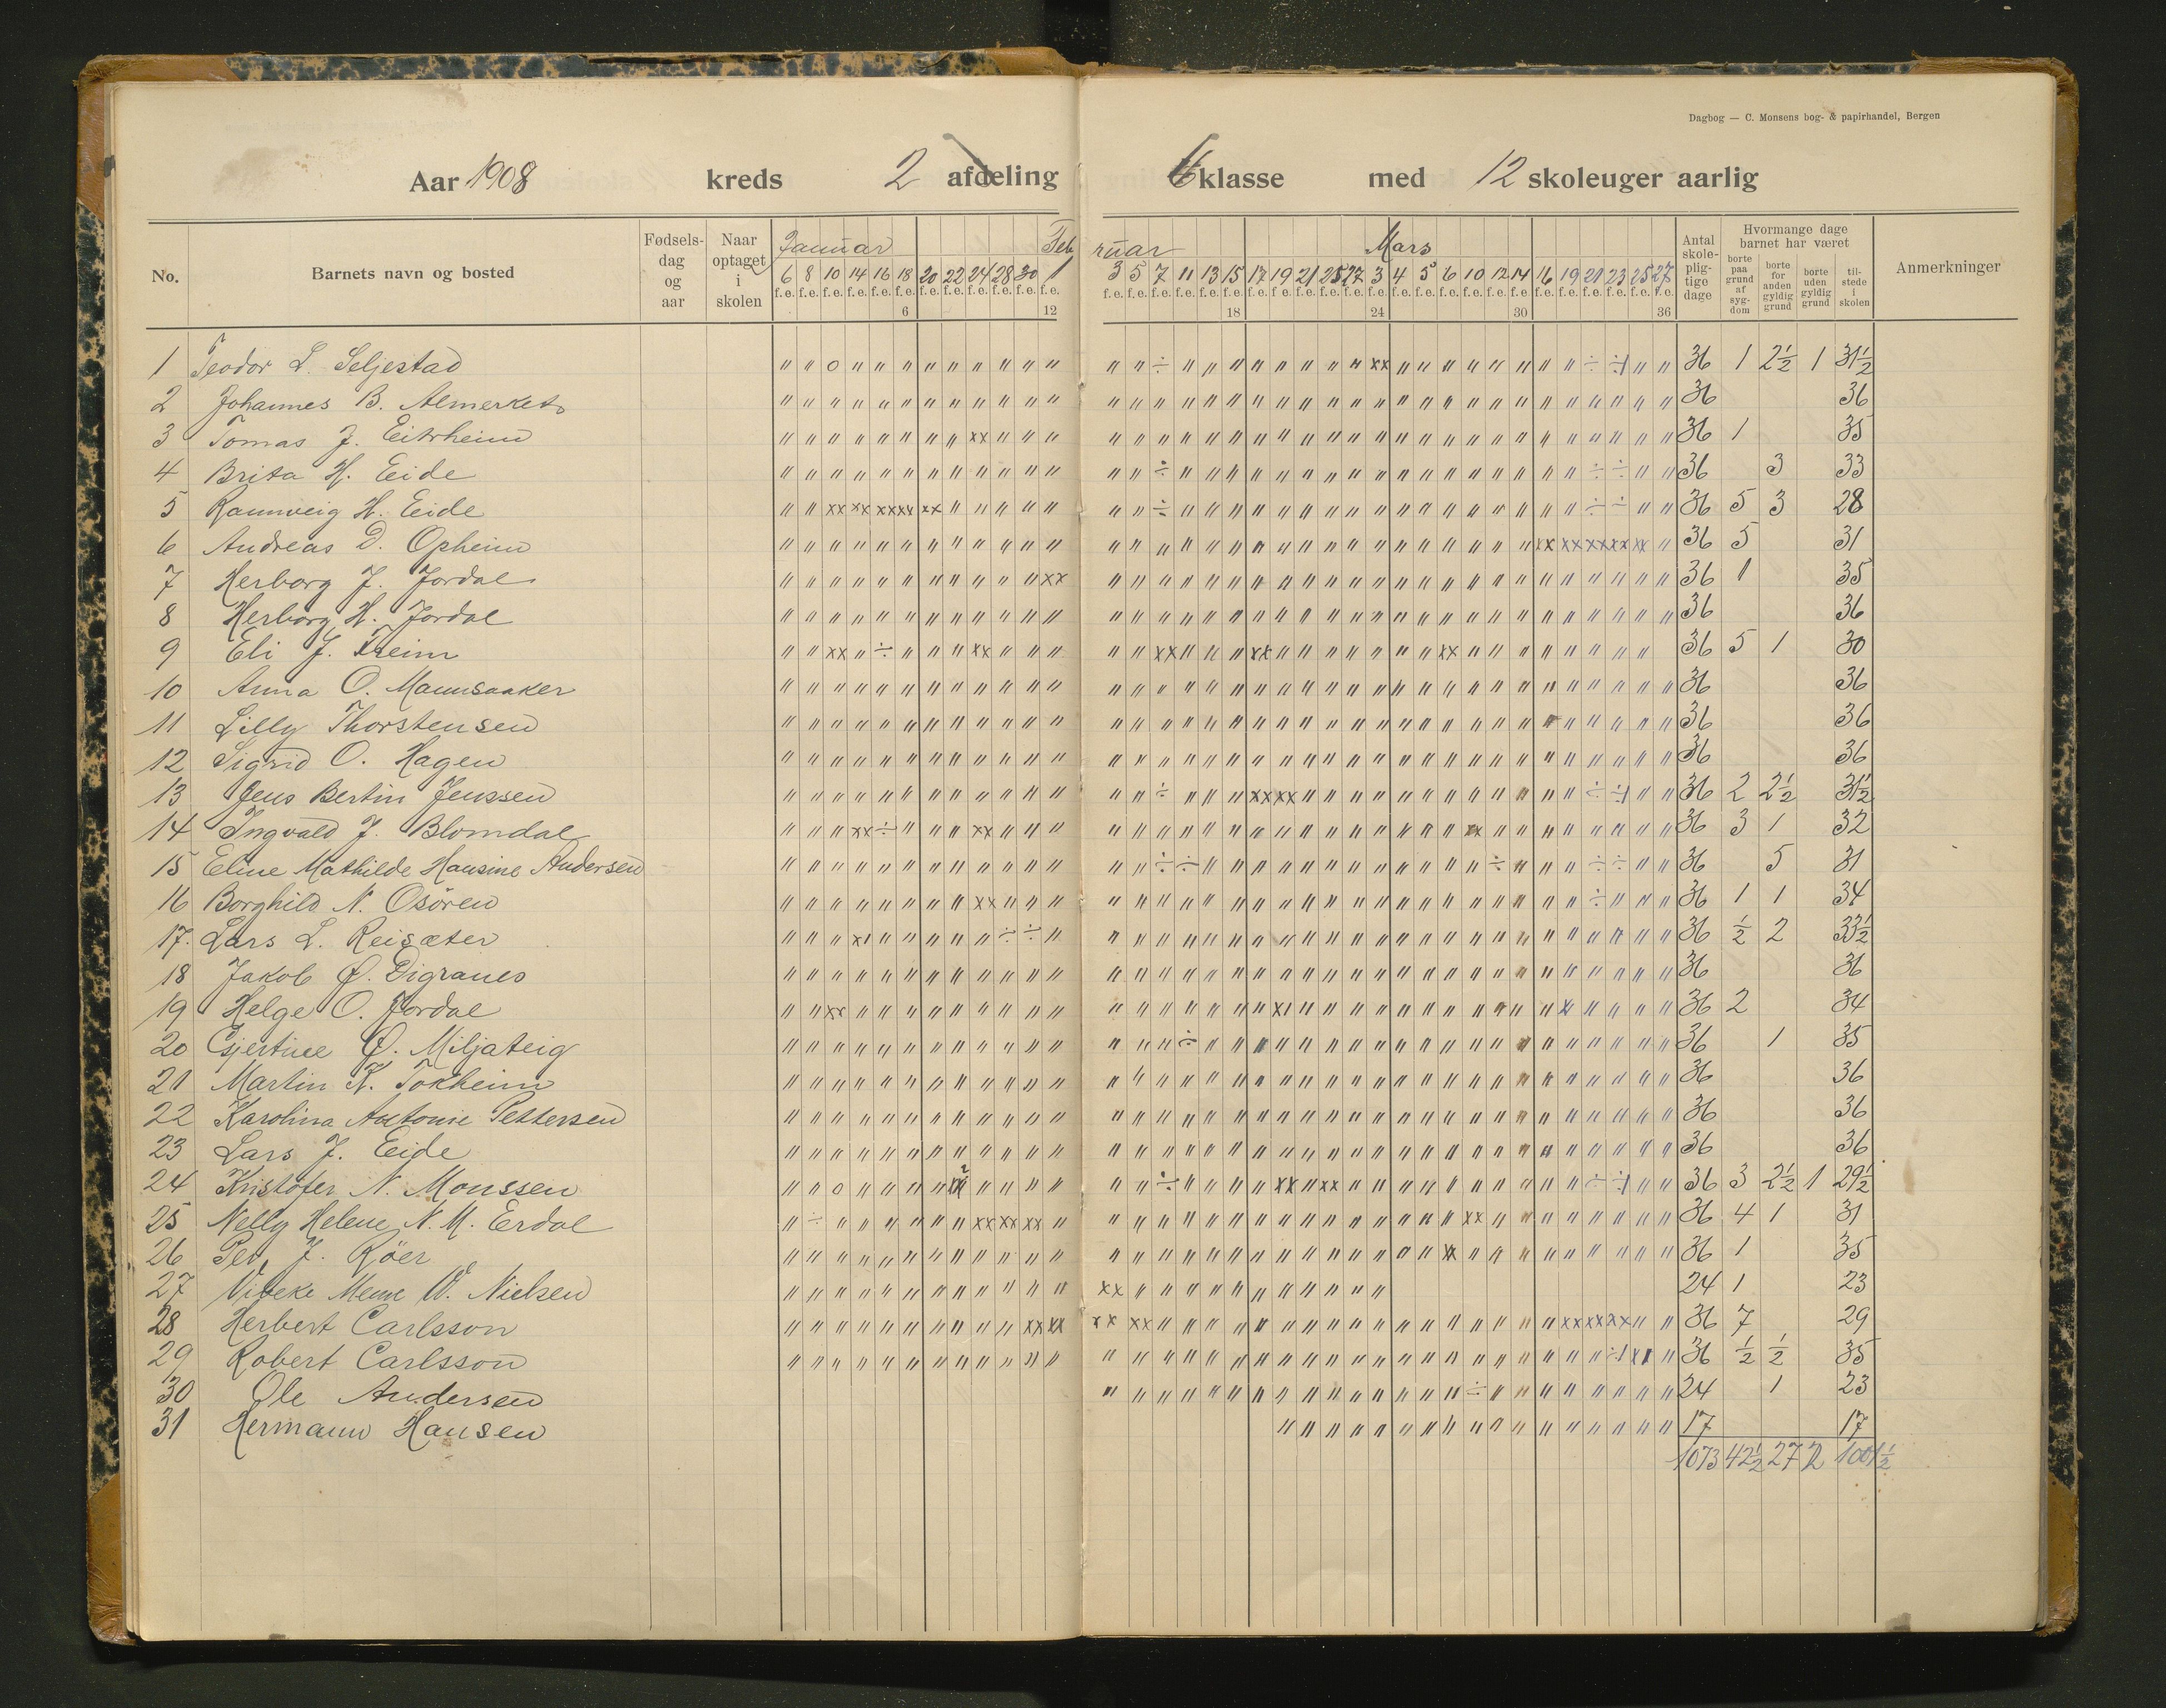 Dagbog — C. Monsens bog- & papirhandel, Bergen
Aar 1908 kreds 2 afdeling 6 klasse med 12 skoleuger aarlig
No. Barnets navn og bosted Fødsels-dag og aar Naar optaget i skolen Januar Februar Mars Antal skole-plig-tige dage Hvormange dage barnet har været Anmerkninger
borte paa grund af syg-dom borte for anden gyldig grund borte uden gyldig grund til-stede i skolen
6 8 10 14 16 18 20 22 24 28 30 1 3 5 7 11 13 15 17 19 21 25 27 3 4 5 6 10 12 14 16 19 21 23 25 27
f.e. f.e. f.e. f.e. f.e. f.e. f.e. f.e. f.e. f.e. f.e. f.e. f.e. f.e. f.e. f.e. f.e. f.e. f.e. f.e. f.e. f.e. f.e. f.e. f.e. f.e. f.e. f.e. f.e. f.e. f.e. f.e. f.e. f.e. f.e. f.e.
6 12 18 24 30 36
1 Teodor L. Seljestad 36 1 2½ 1 31½
2 Johannes B. Almerket 36 36
3 Tomas J. Eitrheim 36 1 35
4 Brita H. Eide 36 3 33
5 Rannveig H. Eide 36 5 3 28
6 Andreas D. Opheim 36 5 31
7 Herborg J. Jordal 36 1 35
8 Herborg H. Jordal 36 36
9 Eli J. Freim 36 5 1 30
10 Anna O. Mannsaaker 36 36
11 Lilly Thorstensen 36 36
12 Sigrid O. Hagen 36 36
13 Jens Bertin Jenssen 36 2 2½ 31½
14 Ingvald J. Blomdal 36 3 1 32
15 Eline Mathilde Hansine Andersen 36 5 31
16 Borghild N. Osören 36 1 1 34
17. Lars L. Reisæter 36 ½ 2 33½
18 Jakob Ø. Digranes 36 36
19 Helge O. Jordal 36 2 34
20 Gjertine Ø. Miljateig 36 1 35
21 Martin K. Tokheim 36 36
22 Karolina Antonie Pettersen 36 36
23 Lars J. Eide 36 36
24 Kristofer N. Monssen 36 3 2½ 1 29½
25 Nelly Helene N. M. Erdal 36 4 1 31
26 Per J. Röer 36 1 35
27 Viveke W. Nielsen 24 1 23
28 Herbert Carlsson 36 7 29
29 Robert Carlsson 36 ½ ½ 35
30 Ole Andersen 24 1 23
31 Hermann Hansen 17 17
1073 42½ 27 2 1001½